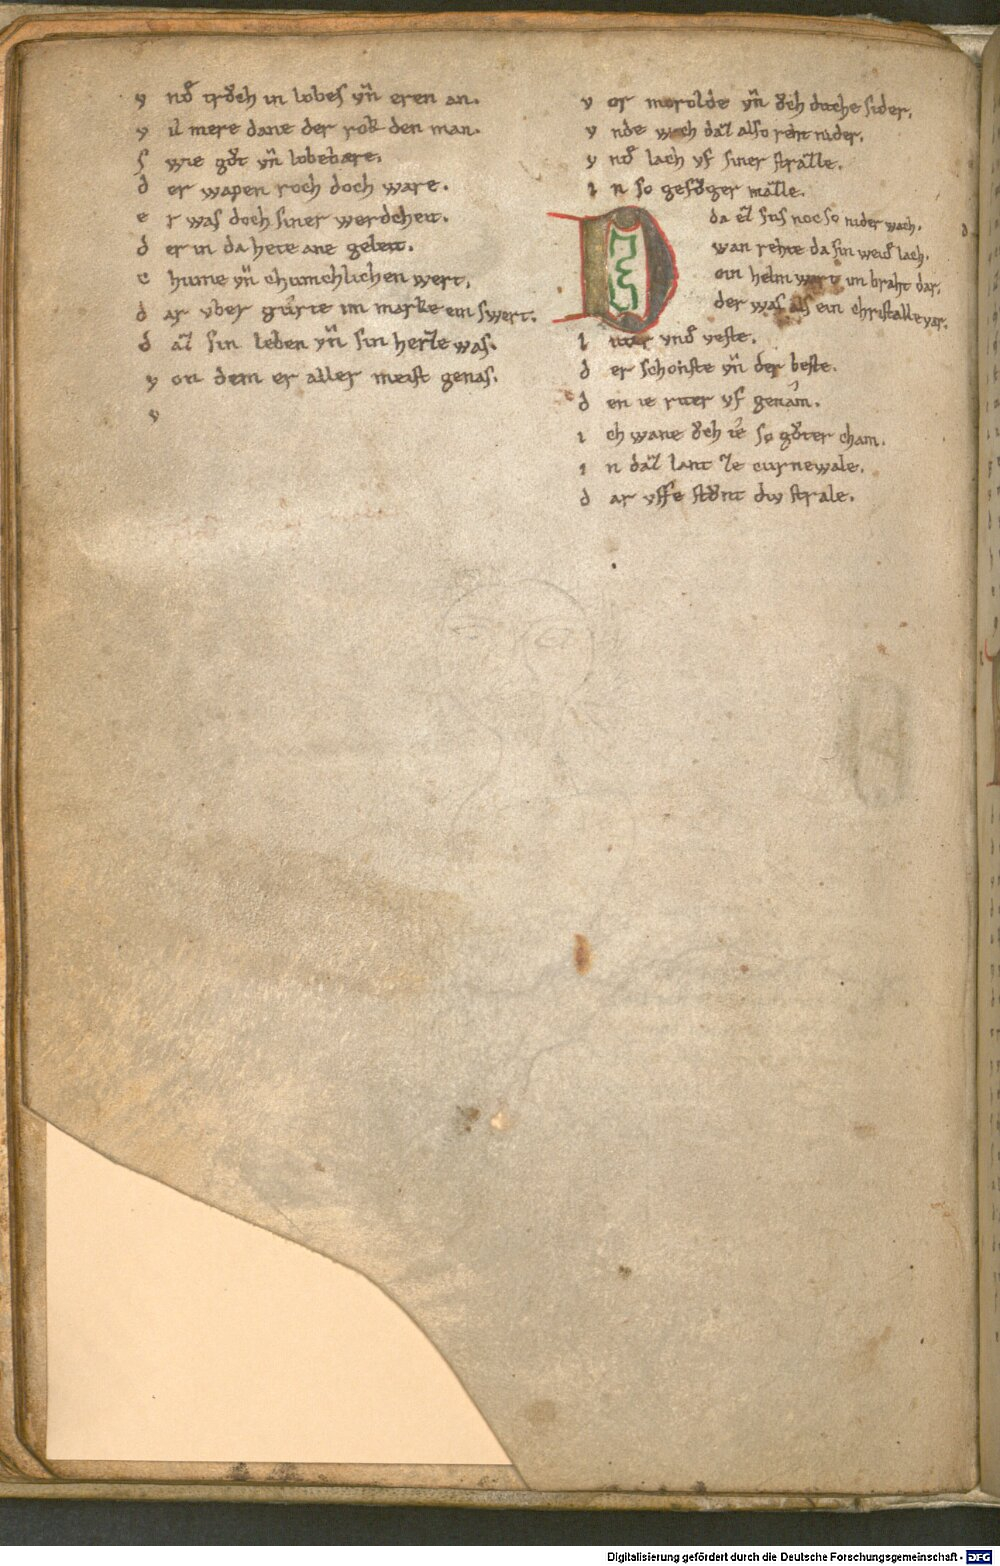 v nď trǒch in lobes vn̄ eren an.
v il mere dane der rok den man.
s wie gǒt vn̄ lobebære.
d er wapen roch doch ware.
e r was doch siner werdcheit.
d er in da hete ane geleit.
c hume vn̄ chumchlichen wert.
d ar vber gůrte im marke ein swert.
d az sin leben vn̄ sin herze was.
v on dem er aller meist genas.
v
v or morolde vn̄ ǒch diche sider.
v nde wech daz also reht nider.
v nď lach vf siner strazze.
i n so gefǒger mazze.
D da ez sus noc so nider wach.
wan rehte da sin weid lach.
ein helm wart im braht dar.
der was als ein christalle var.
l uter vnď veste.
d er schonste vn̄ der beste.
d en ie riter vf genam.
i ch wane ǒch ie so gǒter cham.
i n daz lant ze curnewale.
d ar vffe stǒnt diu strale.
Digitalisierung gefördert durch die Deutsche Forschungsgemeinschaft - DFG